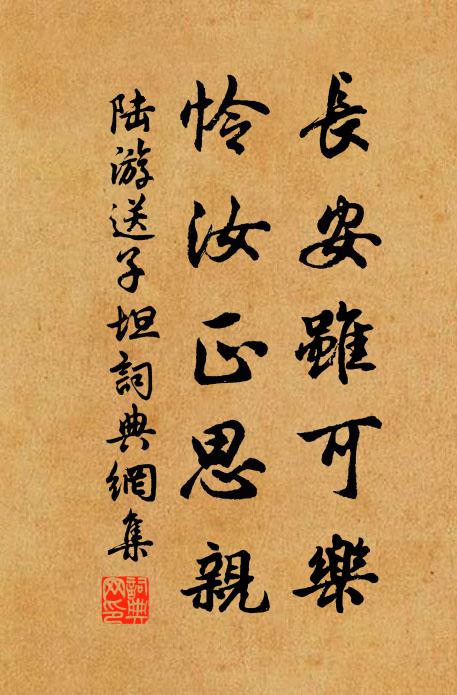 長安雖可樂
怜汝正思親
陸游送子坦詞典網集
詞典
网印